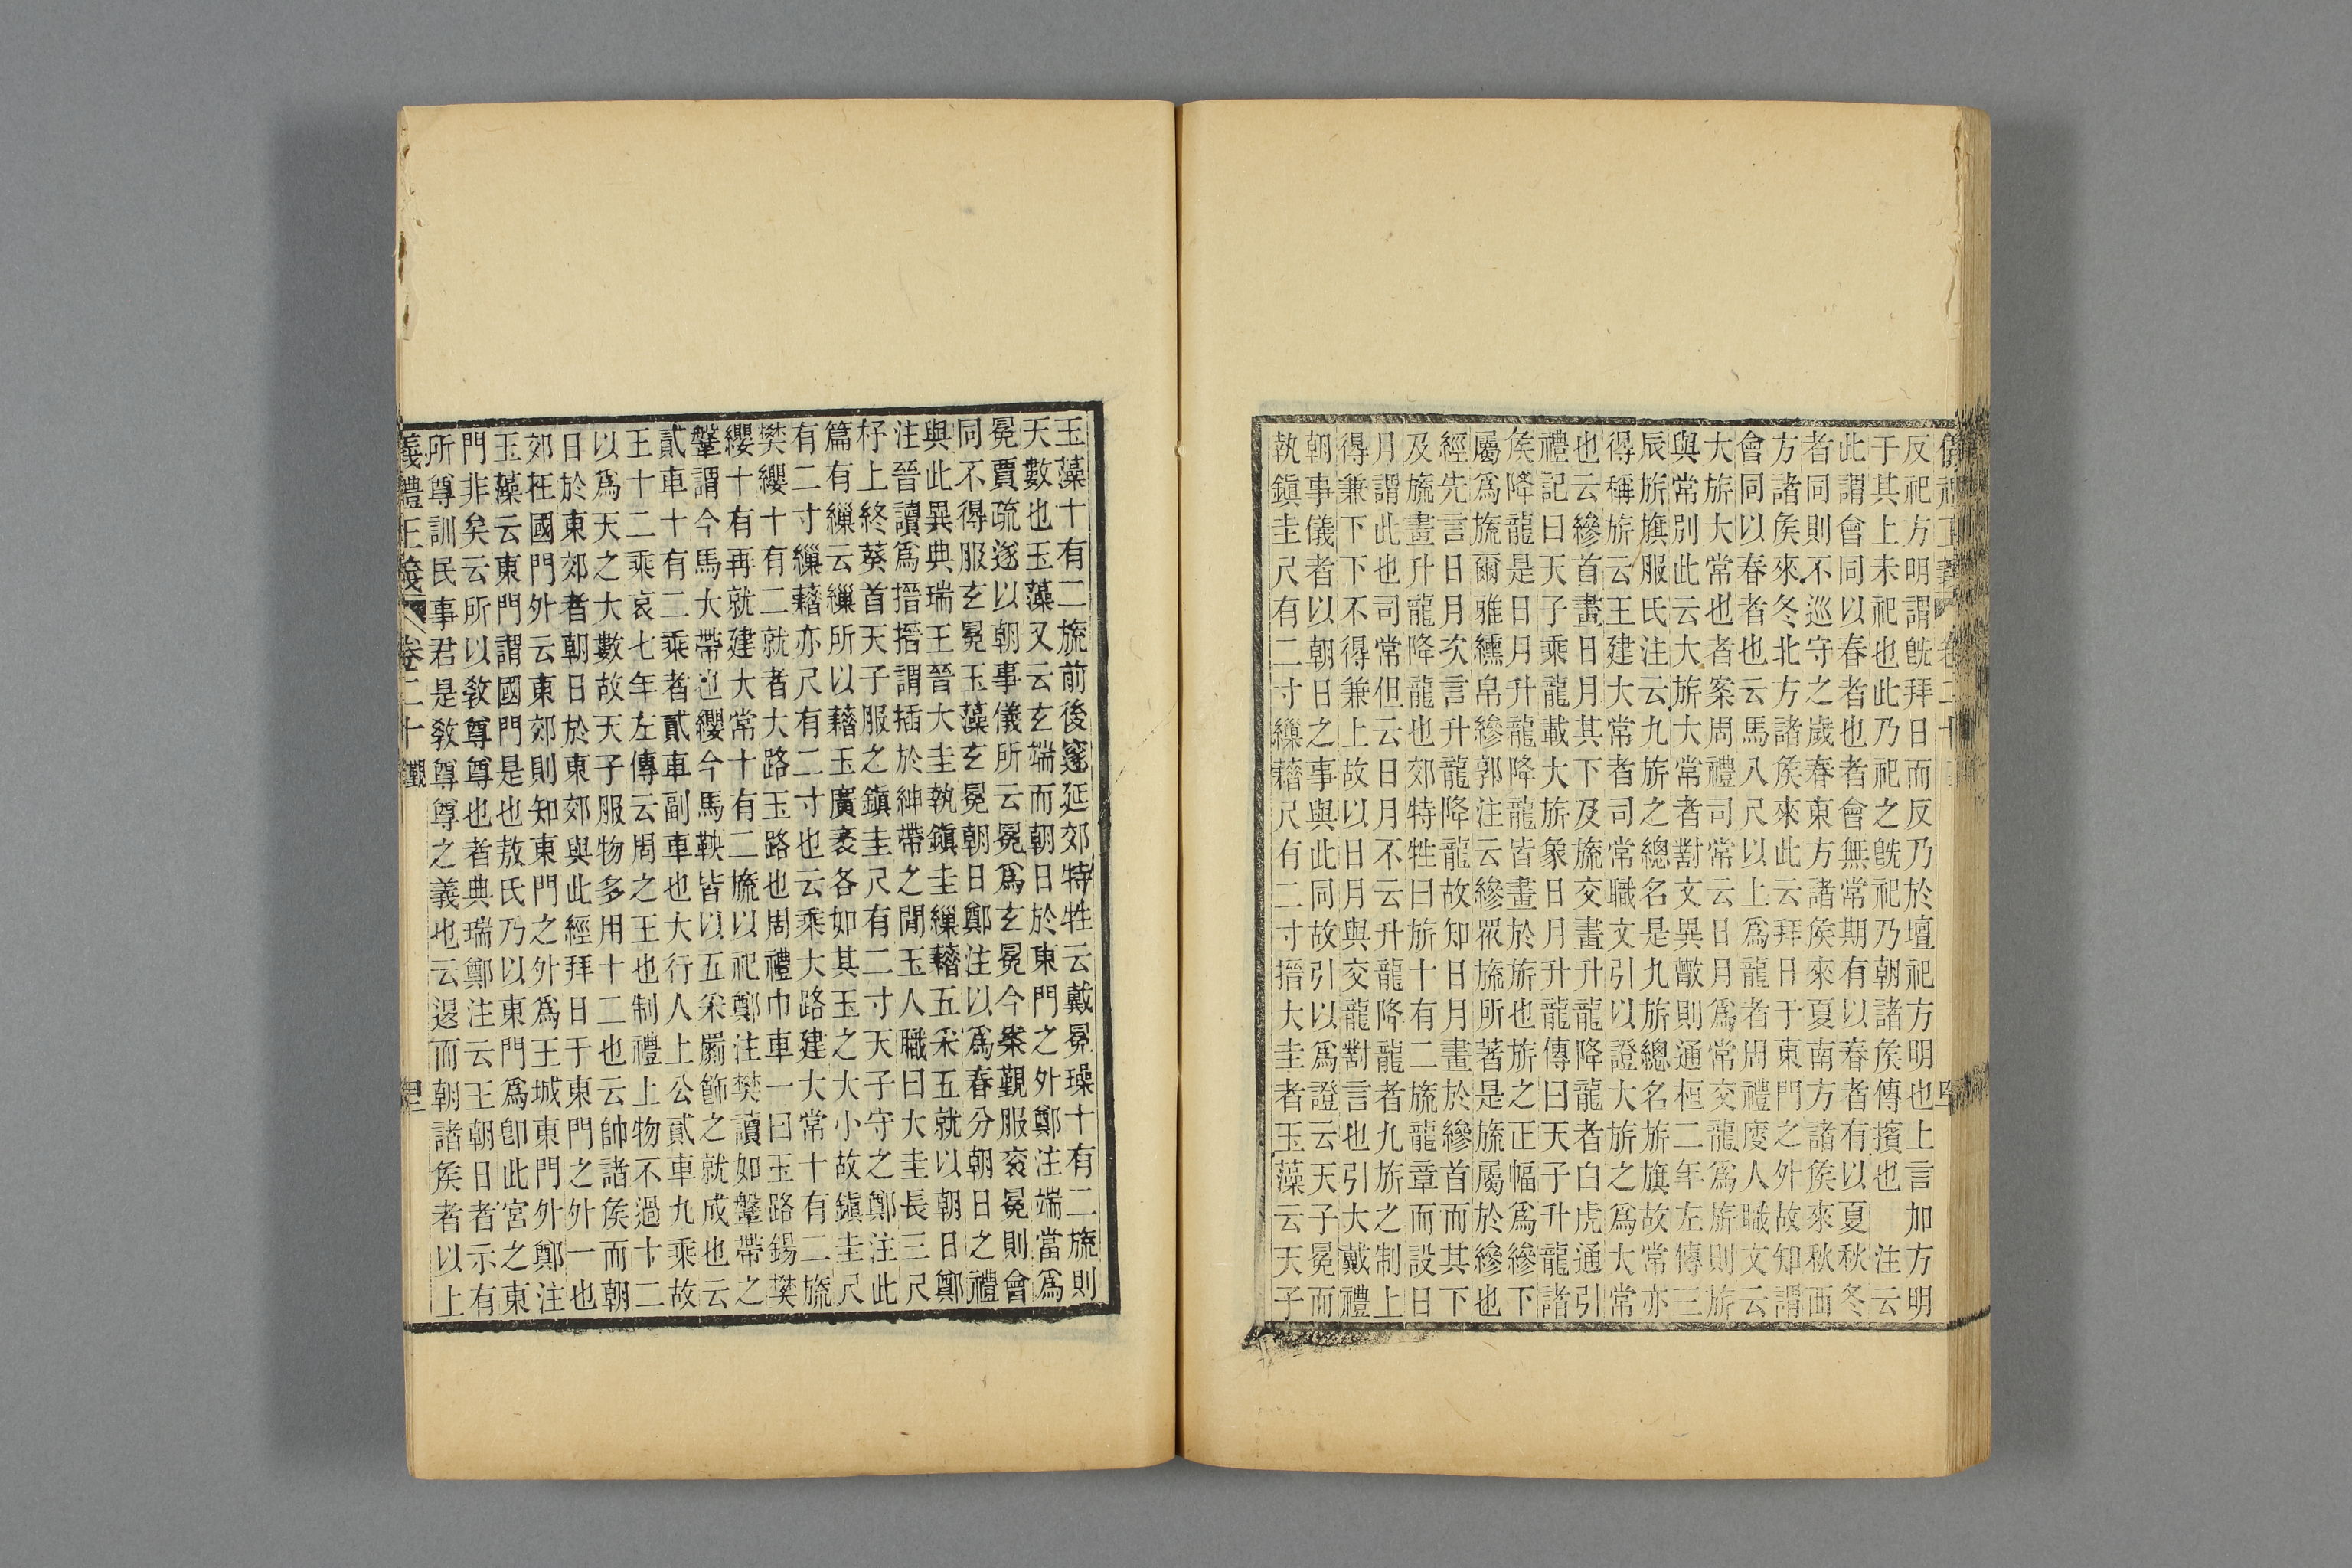 反祀方明謂旣拜日而反乃於壇祀方明也上言加方明
于其上未祀也此乃祀之旣祀乃朝諸矦傳擯也　注云
此謂會同以春者也者會無常期有以春者有以夏秋冬
者同則不巡守之歲春東方諸矦來夏南方諸矦來秋西
方諸矦來冬北方諸矦來此云拜日于東門之外故知謂
會同以春者也云馬八尺以上爲龍者周禮廋人職文云
大旂大常也者案周禮司常云日月爲常交龍爲旂則旂
與常別此云大旂大常者對文異散則通桓二年左傳三
辰旂旗服氏注云九旂之總名是九旂總名旂旗故常亦
得稱旂云王建大常者司常職文引以證大旂之爲大常
也云縿首畫日月其下及旒交畫升龍降龍者白虎通引
禮記曰天子乘龍載大旂象日月升龍傳曰天子升龍諸
矦降龍是日月升龍降龍皆畫於旂也旂之正幅爲縿下
屬爲旒爾雅纁帛縿郭注云縿眾旒所著是旒屬於縿也
經先言日月次言升龍降龍故知日月畫於縿首而其下
及旒畫升龍降龍也郊特牲曰旂十有二旒龍章而設日
月謂此也司常但云日月不云升龍降龍者九旂之制上
得兼下下不得兼上故以日月與交龍對言也引大戴禮
朝事儀者以朝日之事與此同故引以爲證云天子冕而
執鎭圭尺有二寸繅藉尺有二寸搢大圭者玉藻云天子
玉藻十有二旒前後邃延郊特牲云戴冕璪十有二旒則
天數也玉藻又云玄端而朝日於東門之外鄭注端當爲
冕賈疏遂以朝事儀所云冕爲玄冕今案覲服袞冕則會
同不得服玄冕玉藻玄冕朝日鄭注以爲春分朝日之禮
與此異典瑞王晉大圭執鎭圭繅藉五采五就以朝日鄭
注晉讀爲搢搢謂插於紳帶之閒玉人職曰大圭長三尺
杼上終葵首天子服之鎭圭尺有二寸天子守之鄭注此
篇有繅云繅所以藉玉廣袤各如其玉之大小故鎭圭尺
有二寸繅藉亦尺有二寸也云乘大路建大常十有二旒
樊纓十有二就者大路玉路也周禮巾車一曰玉路錫樊
纓十有再就建大常十有二旒以祀鄭注樊讀如鞶帶之
鞶謂今馬大帶也纓今馬鞅皆以五采罽飾之就成也云
貳車十有二乘者貳車副車也大行人上公貳車九乘故
王十二乘哀七年左傳云周之王也制禮上物不過十二
以爲天之大數故天子服物多用十二也云帥諸矦而朝
日於東郊者朝日於東郊與此經拜日于東門之外一也
郊在國門外云東郊則知東門之外爲王城東門外鄭注
玉藻云東門謂國門是也敖氏乃以東門爲卽此宮之東
門非矣云所以敎尊尊也者典瑞鄭注云王朝日者示有
所尊訓民事君是敎尊尊之義也云退而朝諸矦者以上
禮正義 卷二十 覲